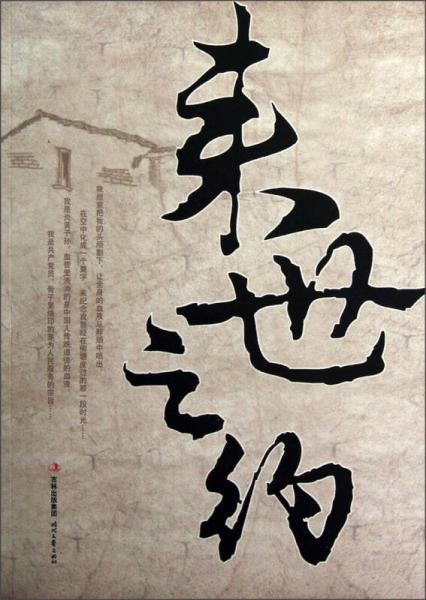 来世之约
我愿意把我的头颅割下 让全身的血液从脖颈中喷出
在空中化成一个 字 来纪念我曾经在 塘度过的那一段时光……
我是炎黄子孙 血管里流淌的是中国人传统道德的血液
我是共产党员 骨子里烙印的是为人民服务的宗旨……
吉林出版集团
时代文艺出版社